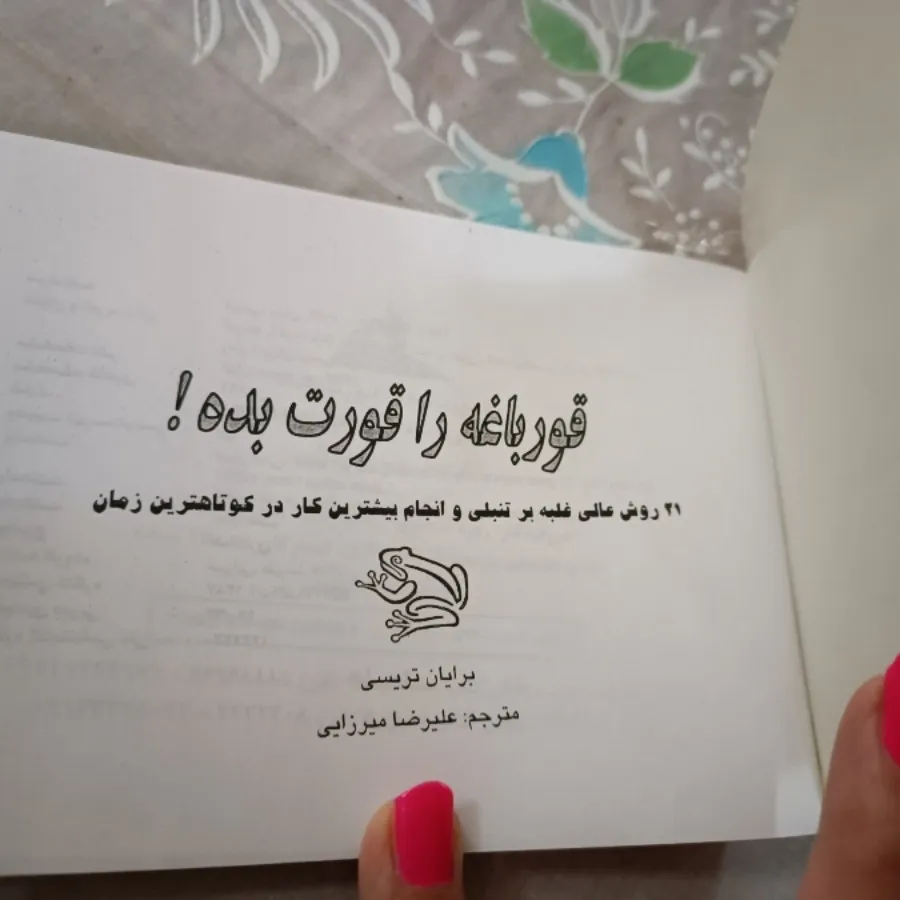 قورباغه را قورت بده!
۲۱ روش عالی غلبه بر تنبلی و انجام بیشترین کار در کوتاهترین زمان
برایان تریسی
مترجم: علیرضا میرزایی